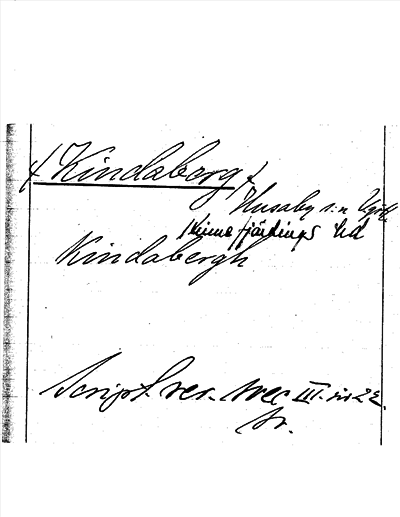 (Kindaberg)
Husaby s:n Vgötl.
Kinnefjärdings hd
Kindabergh
Script. rer. svec III. s. 22